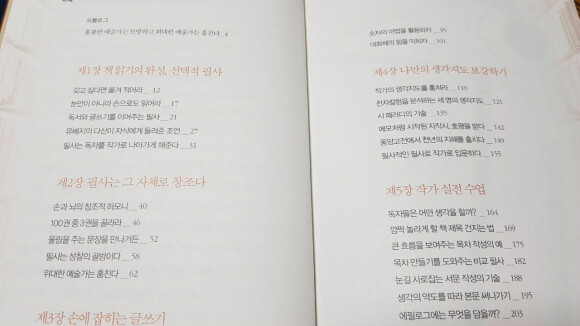 프롤로그
훌륭한 예술가는 모방하고 위대한 예술가는 훔친다 _ 4
제1장 책읽기의 완성, 선택적 필사
갖고 싶다면 옮겨 적어라 _ 12
눈만이 아니라 손으로도 읽어라 _ 17
독서와 글쓰기를 이어주는 필사 _ 21
유배지의 다산이 자식에게 들려준 조언 _ 27
필사는 독자를 작가로 나아가게 해준다 _ 31
제2장 필사는 그 자체로 창조다
손과 뇌의 창조적 하모니 _ 40
100권 중 3권을 골라라 _ 46
울림을 주는 문장을 만나거든 _ 52
필사는 성찰의 골방이다 _ 58
위대한 예술가는 훔친다 _ 62
제3장 손에 잡히는 글쓰기
숫자의 마법을 활용하자 _ 95
대화체의 힘을 익히자 _ 101
제4장 나만의 생각지도 보강하기
작가의 생각지도를 훔쳐라 _ 110
천자칼럼을 분석하는 세 명의 생각지도 _ 121
시 패러디의 기술 _ 135
메모처럼 시작된 자작시, 호평을 받다 _ 142
동양고전에서 천년의 지혜를 훔치다 _ 149
필사적인 필사로 작가로 입문하다 _ 155
제5장 작가 실전 수업
독자들은 어떤 생각을 할까? _ 164
깜짝 놀라게 할 책 제목 건지는 법 _ 169
큰 흐름을 보여주는 목차 작성의 예 _ 175
목차 만들기를 도와주는 비교 필사 _ 182
눈길 사로잡는 서문 작성의 기술 _ 188
생각의 약도를 따라 본문 써나가기 _ 195
에필로그에는 무엇을 담을까? _ 203